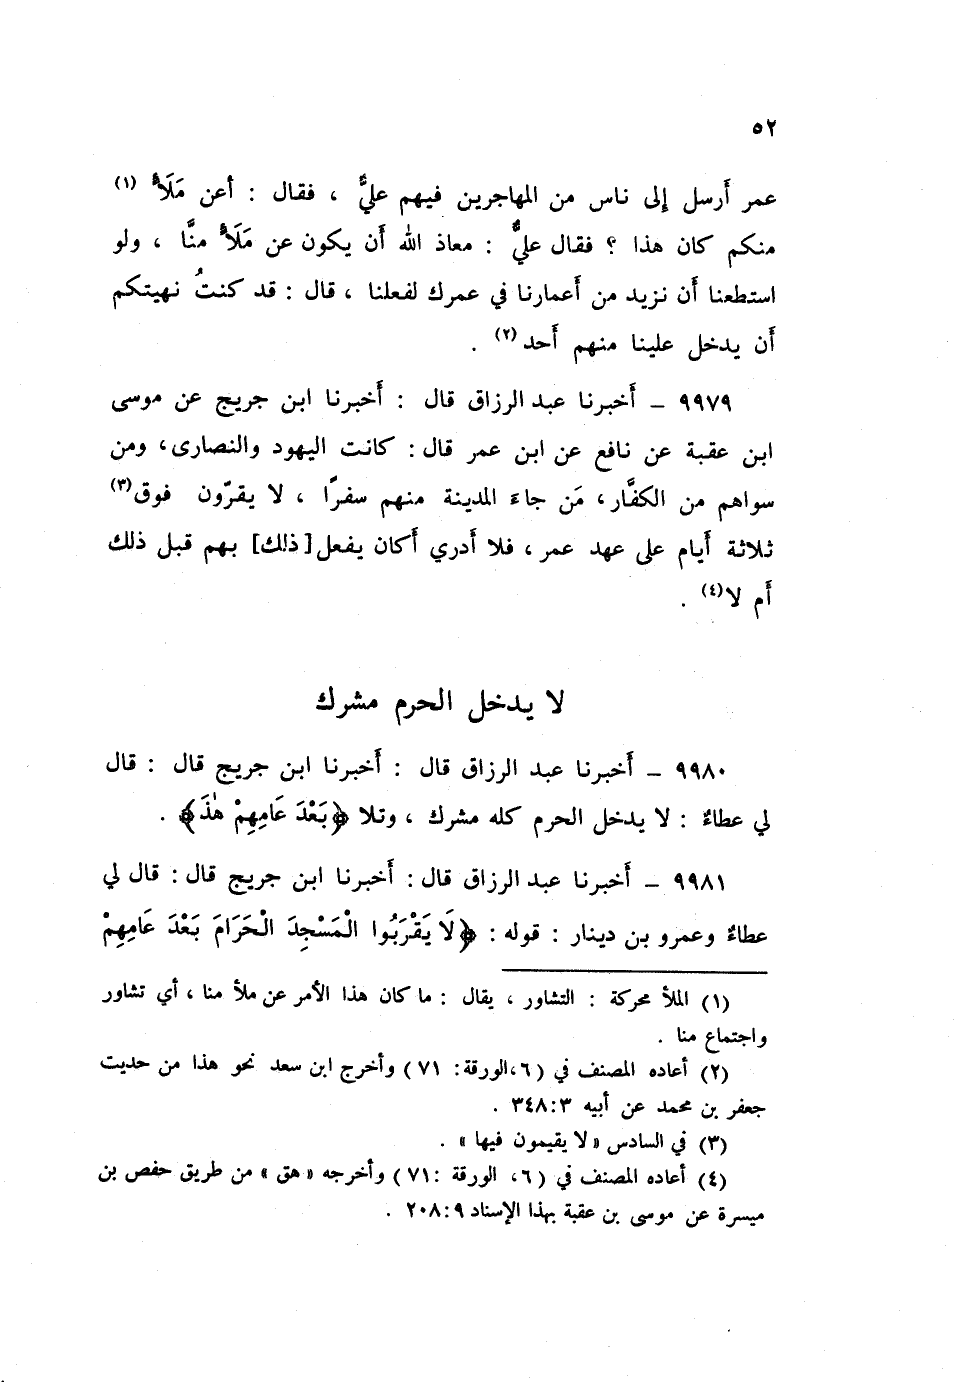 ٥٢
عمر أَرسل إلى ناس من المهاجرين فيهم عليٌّ ، فقال : أعن مَلَأٍ (١)
منكم كان هذا ؟ فقال عليٌّ : معاذ الله أَن يكون عن مَلَأٍ منَّا ، ولو
استطعنا أَن نزيد من أَعمارنا في عمرك لفعلنا ، قال : قد كنتُ نهيتكم
أَن يدخل علينا منهم أَحد (٢) .
٩٩٧٩ ـ أَخبرنا عبد الرزاق قال : أَخبرنا ابن جريج عن موسى
ابن عقبة عن نافع عن ابن عمر قال : كانت اليهود والنصارى ، ومن
سواهم من الكفَّار ، مَن جاءَ المدينة منهم سفرًا ، لا يقرّون فوق (٣)
ثلاثة أَيام على عهد عمر ، فلا أَدري أَكان يفعل [ ذلك ] بهم قبل ذلك
أَم لا (٤) .
لا يدخل الحرم مشرك
٩٩٨٠ ـ أَخبرنا عبد الرزاق قال : أَخبرنا ابن جريج قال : قال
لي عطاءٌ : لا يدخل الحرم كله مشرك ، وتلا ﴿بَعْدَ عَامِهِمْ هٰذَ﴾ .
٩٩٨١ ـ أَخبرنا عبد الرزاق قال : أَخبرنا ابن جريج قال : قال لي
عطاءٌ وعمرو بن دينار : قوله : ﴿لَا يَقْرَبُوا الْمَسْجِدَ الْحَرَامَ بَعْدَ عَامِهِمْ
(١) الملأ محركة : التشاور ، يقال : ما كان هذا الأمر عن ملأ منا ، أي تشاور
واجتماع منا .
(٢) أعاده المصنف في ( ٦ ، الورقة : ٧١ ) وأخرج ابن سعد نحو هذا من حديث
جعفر بن محمد عن أبيه ٣ : ٣٤٨ .
(٣) في السادس « لا يقيمون فيها » .
(٤) أعاده المصنف في ( ٦ ، الورقة : ٧١ ) وأخرجه « هق » من طريق حفص بن
ميسرة عن موسى بن عقبة بهذا الإسناد ٩ : ٢٠٨ .